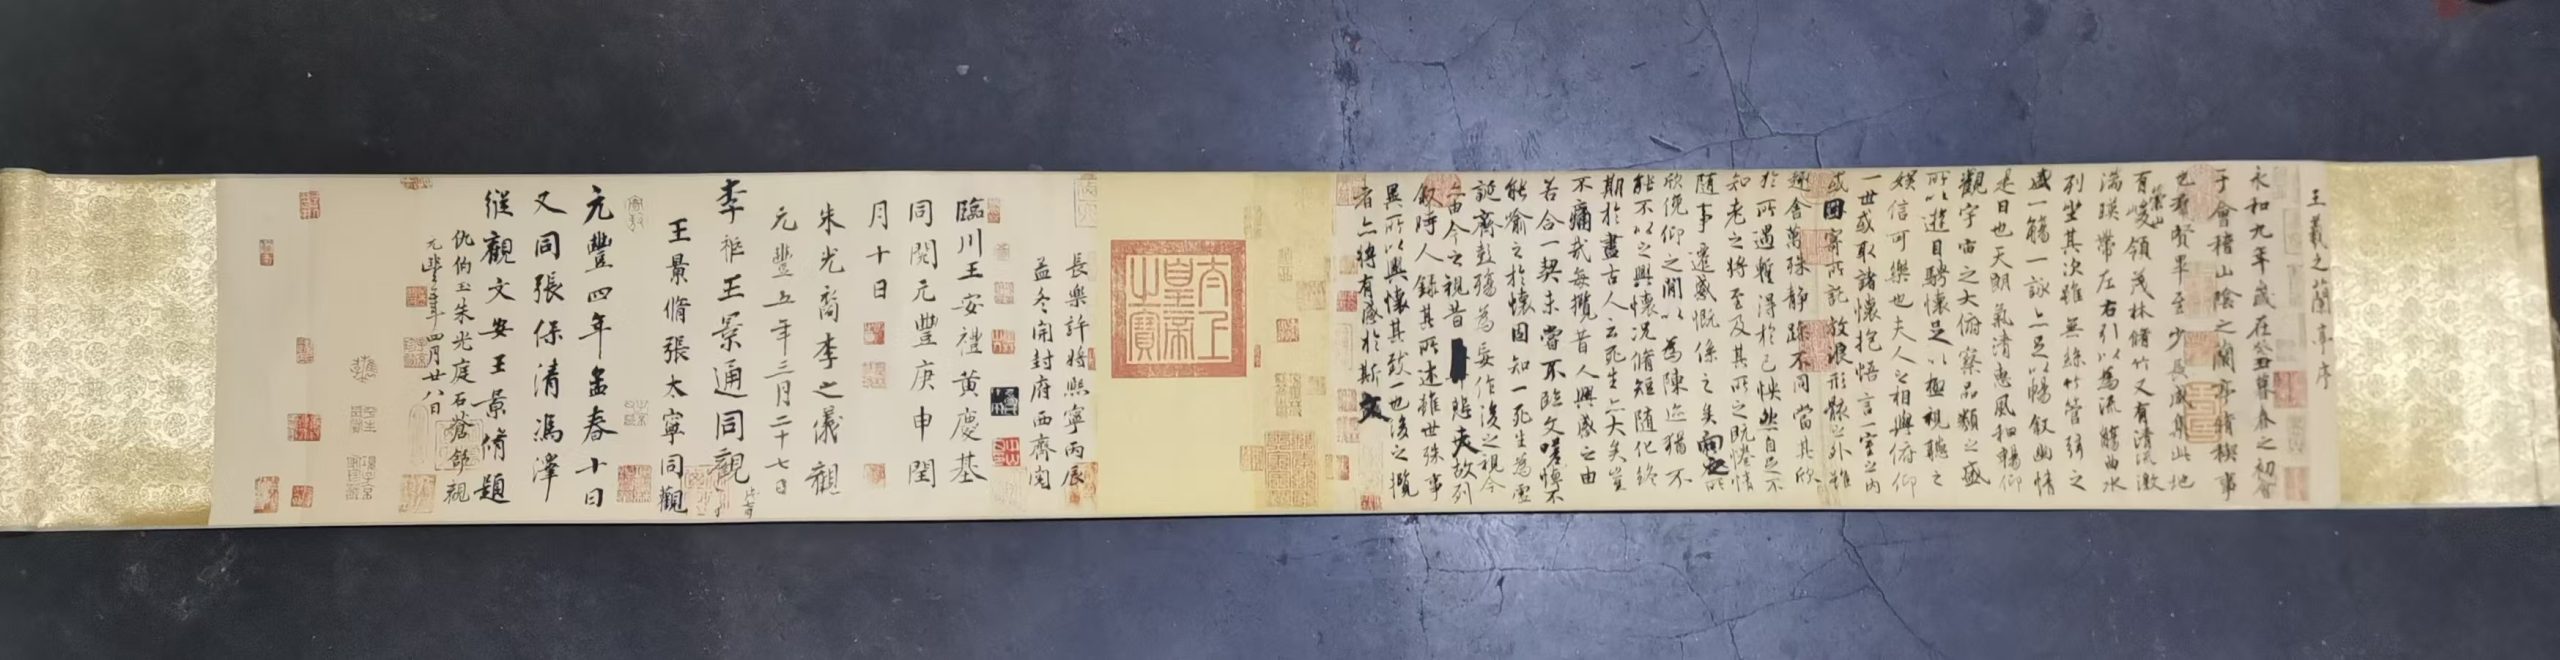 王羲之蘭亭序
永和九年歲在癸丑暮春之初會
于會稽山陰之蘭亭脩稧事
也羣賢畢至少長咸集此地
有崇山峻領茂林脩竹又有清流激
湍暎帶左右引以為流觴曲水
列坐其次雖無絲竹管弦之
盛一觴一詠亦足以暢敘幽情
是日也天朗氣清惠風和暢仰
觀宇宙之大俯察品類之盛
所以遊目騁懷足以極視聽之
娛信可樂也夫人之相與俯仰
一世或取諸懷抱悟言一室之內
或因寄所託放浪形骸之外雖
趣舍萬殊靜躁不同當其欣
於所遇暫得於己怏然自足不
知老之將至及其所之既惓情
隨事遷感慨係之矣向之所
欣俛仰之閒以為陳迹猶不
能不以之興懷況脩短隨化終
期於盡古人云死生亦大矣豈
不痛哉每攬昔人興感之由
若合一契未嘗不臨文嗟悼不
能喻之於懷固知一死生為虛
誕齊彭殤為妄作後之視今
亦由今之視昔悲夫故列
敘時人錄其所述雖世殊事
異所以興懷其致一也後之攬
者亦將有感於斯文
太上皇帝之寶
長樂許將熙寧丙辰
孟冬開封府西齋閱
臨川王安禮黃慶基
同閱元豐庚申閏
月十日
朱光裔李之儀觀
元豐五年三月二十七日
李秬王景通同觀
王景脩張太寧同觀
元豐四年孟春十日
又同張保清馮澤
縱觀文安王景脩題
仇伯玉朱光庭石蒼舒觀
元豐年四月廿八日